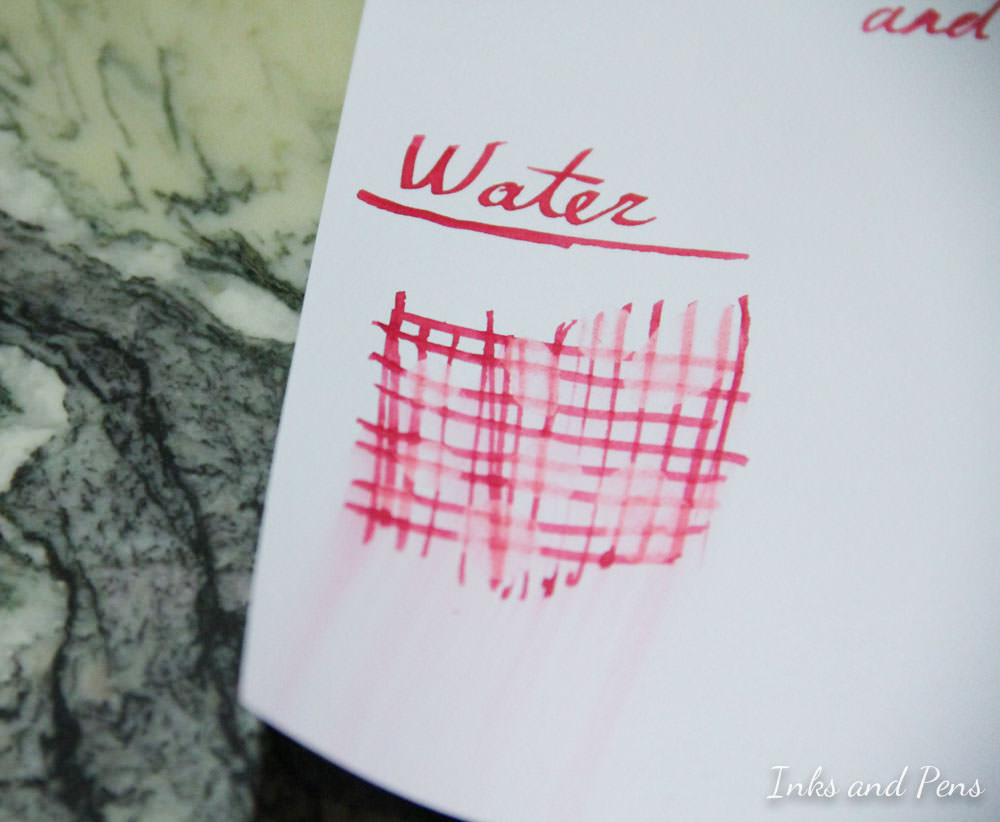 and
Water
Inks and Pens